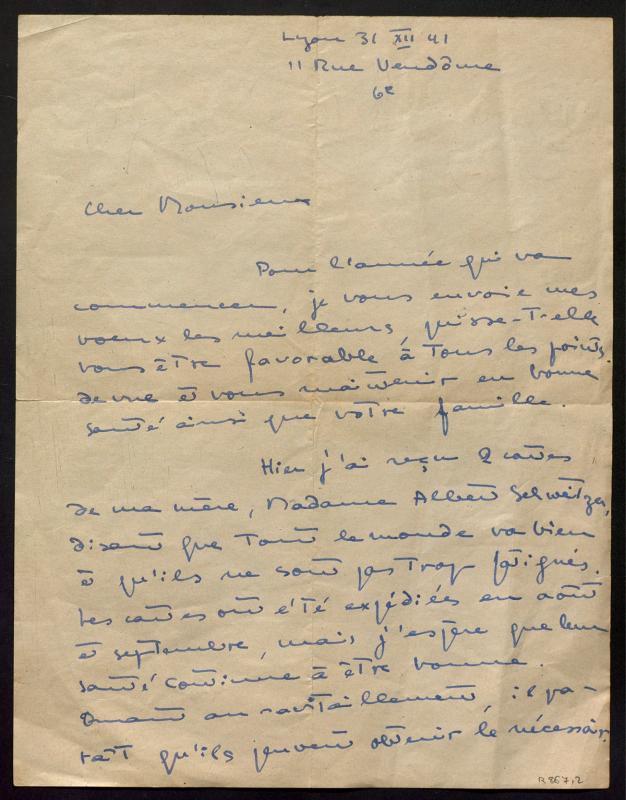 Lyon 31 XII 41
11 Rue Vendôme
6e
Cher Monsieur
Pour l'année qui va
commencer, je vous envoie mes
voeux les meilleurs, puisse-t-elle
vous être favorable à tous les points
de vue et vous maintenir en bonne
santé ainsi que votre famille.
Hier j'ai reçu 2 cartes
de ma mère, Madame Albert Schweitzer,
disant que tout le monde va bien
et qu'ils ne sont pas trop fatigués.
Les cartes ont été expédiées en août
et septembre, mais j'espère que leur
santé continue à être bonne.
Quant au ravitaillement, il pa-
raît qu'ils peuvent obtenir le nécessaire.
R 867,2